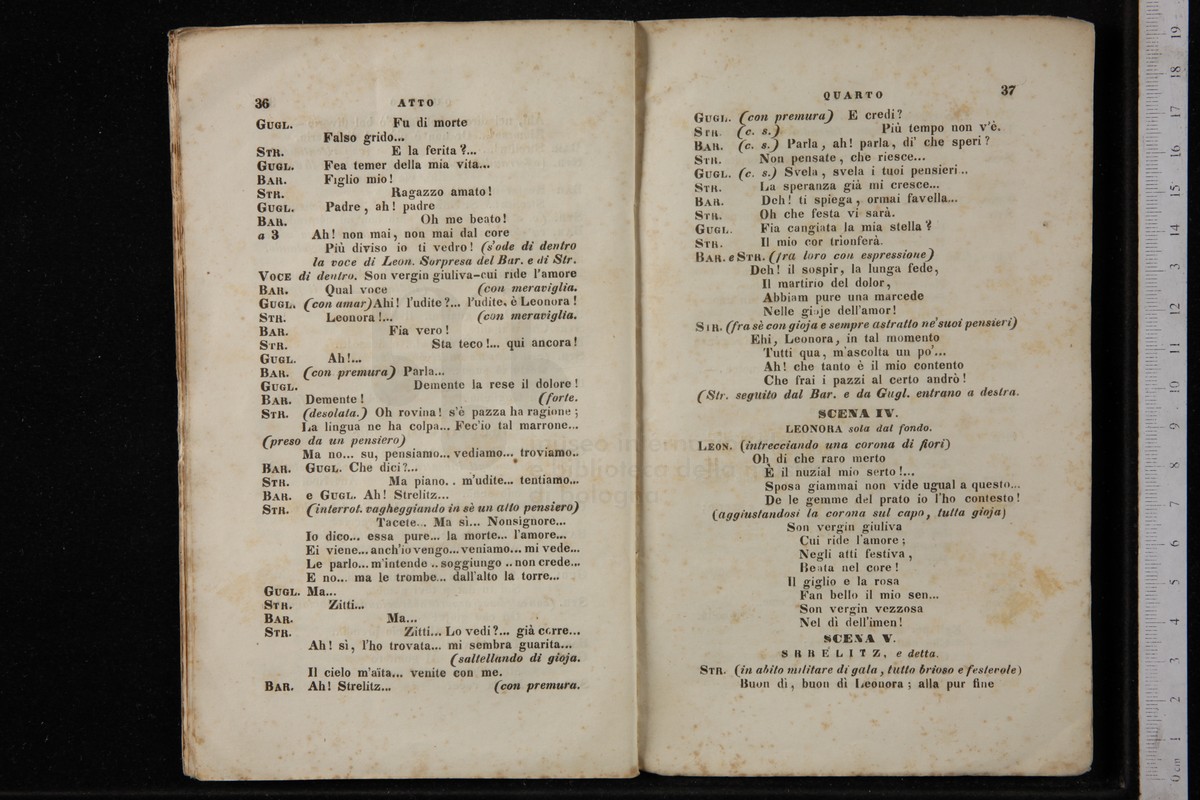 36 ATTO
GUGL. Fu di morte
Falso grido...
STR. E la ferita?...
GUGL. Fea temer della mia vita...
BAR. Figlio mio!
STR. Ragazzo amato!
GUGL. Padre, ah! padre
BAR. Oh me beato!
a 3 Ah! non mai, non mai dal core
Più diviso io ti vedro! (s'ode di dentro
la voce di Leon. Sorpresa del Bar. e di Str.
VOCE di dentro. Son vergin giuliva-cui ride l'amore
BAR. Qual voce (con meraviglia.
GUGL. (con amar) Ahi! l'udite?... l'udite, è Leonora!
STR. Leonora!... (con meraviglia.
BAR. Fia vero!
STR. Sta teco!... qui ancora!
GUGL. Ah!...
BAR. (con premura) Parla...
GUGL. Demente la rese il dolore!
BAR. Demente! (forte.
STR. (desolata.) Oh rovina! s'è pazza ha ragione;
La lingua ne ha colpa... Fec'io tal marrone...
(preso da un pensiero)
Ma no... su, pensiamo... vediamo... troviamo..
BAR. GUGL. Che dici?...
STR. Ma piano. . m'udite... tentiamo...
BAR. e GUGL. Ah! Strelitz...
STR. (interrot. vagheggiando in sè un alto pensiero)
Tacete... Ma sì... Nonsignore...
Io dico... essa pure... la morte... l'amore...
Ei viene... anch'io vengo... veniamo... mi vede...
Le parlo... m'intende .. soggiungo .. non crede...
E no... ma le trombe... dall'alto la torre...
GUGL. Ma...
STR. Zitti...
BAR. Ma...
STR. Zitti... Lo vedi?... già corre...
Ah! sì, l'ho trovata... mi sembra guarita...
(saltellando di gioja.
Il cielo m'aïta... venite con me.
BAR. Ah! Strelitz... (con premura.
QUARTO 37
GUGL. (con premura) E credi?
STR. (c. s.) Più tempo non v'è.
BAR. (c. s.) Parla, ah! parla, di' che speri?
STR. Non pensate, che riesce...
GUGL. (c. s.) Svela, svela i tuoi pensieri..
STR. La speranza già mi cresce...
BAR. Deh! ti spiega, ormai favella...
STR. Oh che festa vi sarà.
GUGL. Fia cangiata la mia stella?
STR. Il mio cor trionferà.
BAR. e STR. (fra loro con espressione)
Deh! il sospir, la lunga fede,
Il martirio del dolor,
Abbiam pure una marcede
Nelle gioje dell'amor!
STR. (fra sè con gioja e sempre astratto ne' suoi pensieri)
Ehi, Leonora, in tal momento
Tutti qua, m'ascolta un po'...
Ah! che tanto è il mio contento
Che frai i pazzi al certo andrò!
(Str. seguito dal Bar. e da Gugl. entrano a destra.
SCENA IV.
LEONORA sola dal fondo.
LEON. (intrecciando una corona di fiori)
Oh di che raro merto
È il nuzial mio serto!...
Sposa giammai non vide ugual a questo...
De le gemme del prato io l'ho contesto!
(aggiustandosi la corona sul capo, tutta gioja)
Son vergin giuliva
Cui ride l'amore;
Negli atti festiva,
Beata nel core!
Il giglio e la rosa
Fan bello il mio sen...
Son vergin vezzosa
Nel dì dell'imen!
SCENA V.
SRRELITZ, e detta.
STR. (in abito militare di gala, tutto brioso e festevole)
Buon dì, buon dì Leonora; alla pur fine